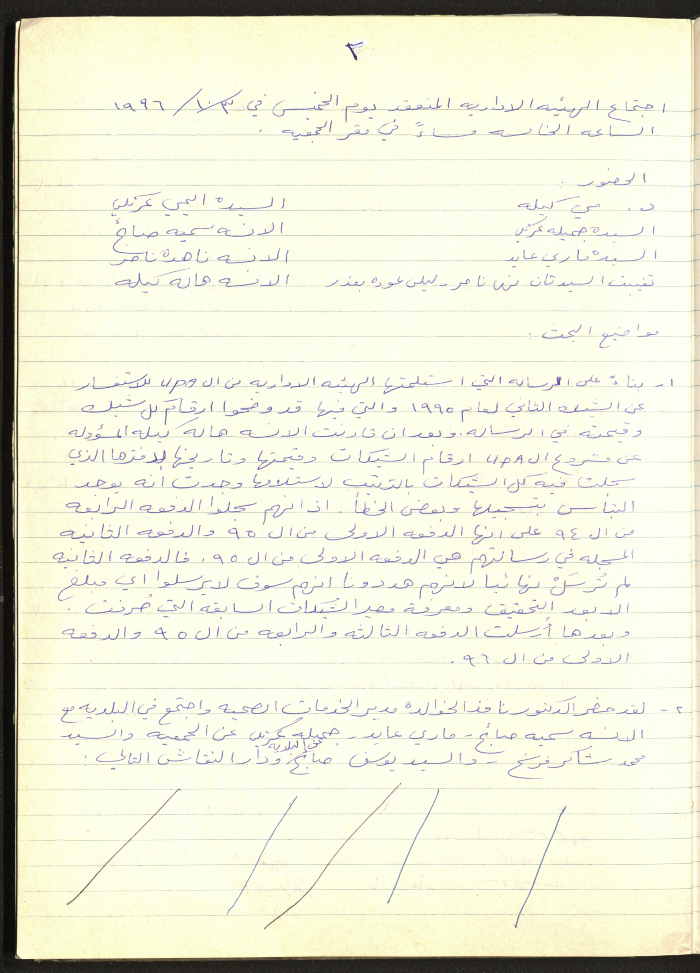 ٢
اجتماع الهيئه الاداريه المنعقد يوم الخميس في ١٠/٣/ ١٩٩٦
الساعه الخامسه مساءً في مقر الجمعيه .
الحضور :
د. مي كيله السيده اليمي عرنكي
السيده جميله عرنكي الانسه سميه صايج
السيده ماري عايد الانسه ناهدة ناصر
تغيبت السيدتان نهى ناصر - ليلى عوده بعذر الانسه هاله كيله
مواضيع البحث :
١- بناءً على الرساله التي استلمتها الهيئه الاداريه من ال UPA للاستفسار
عن الشيك الثاني لعام ١٩٩٥ والتي فيها قد وضحوا ارقام كل شيك
وقيمته في الرساله. وبعد ان قارنت الانسه هاله كيله المسؤوله
عن مشروع ال UPA ارقام الشيكات وقيمتها وتاريخها بدفترها الذي
سجلت فيه كل الشيكات بالترتيب لاستلامها وجدت انه يوجد
التباس بتسجيلها وبعض الخطأ. اذ انهم سجلوا الدفعه الرابعه
من ال ٩٤ على انها الدفعه الاولى من ال ٩٥ والدفعه الثانيه
المسجله في رسالتهم هي الدفعه الاولى من ال ٩٥. فالدفعه الثانيه
لم تُرسَلْ نهائيا لانهم هددونا انهم سوف لا يرسلوا اي مبلغ
الا بعد التحقيق ومعرفة مصير الشيكات السابقه التي صُرفت .
وبعدها أرسلت الدفعه الثالثه والرابعه من ال ٩٥ والدفعه
الاولى من ال ٩٦.
٢- لقد حضر الدكتور نافذ الخوالده مدير الخدمات الصحيه واجتمع في البلديه مع
الانسه سميه صايج - ماري عايد - جميله عرنكي عن الجمعيه والسيد
محمد شاكر فرسخ - والسيد يوسف صايج عن البلديه ودار النقاش التالي :